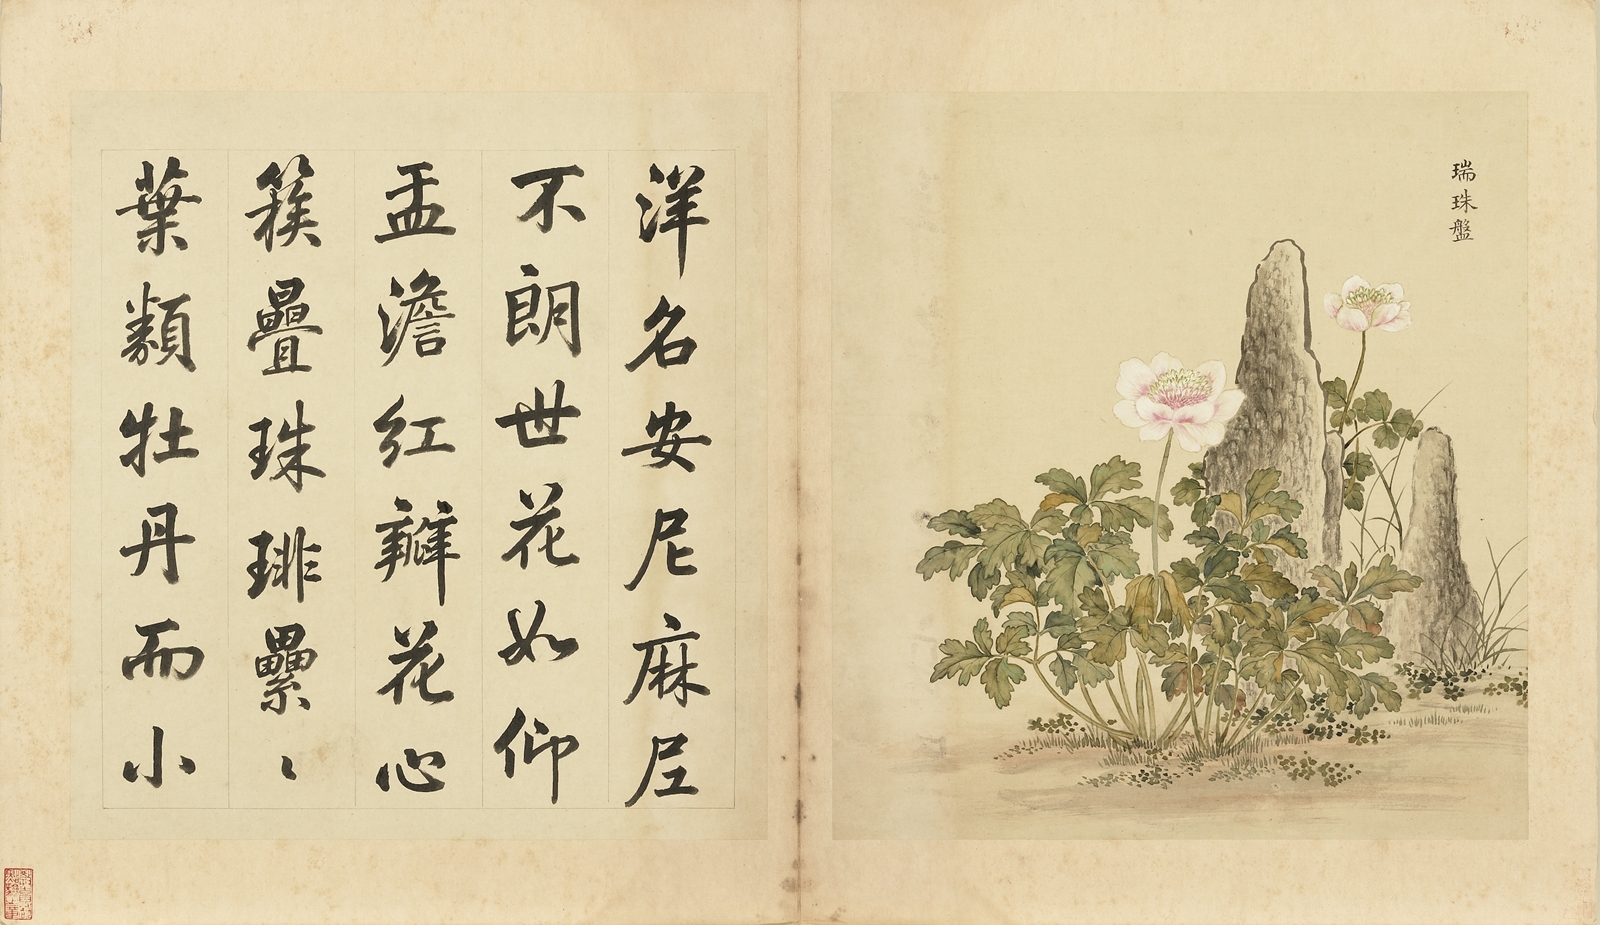 瑞珠盤
洋名安尼麻尼
不朗世花如仰
盂澹紅瓣花心
簇疊珠琲纍〻
葉類牡丹而小